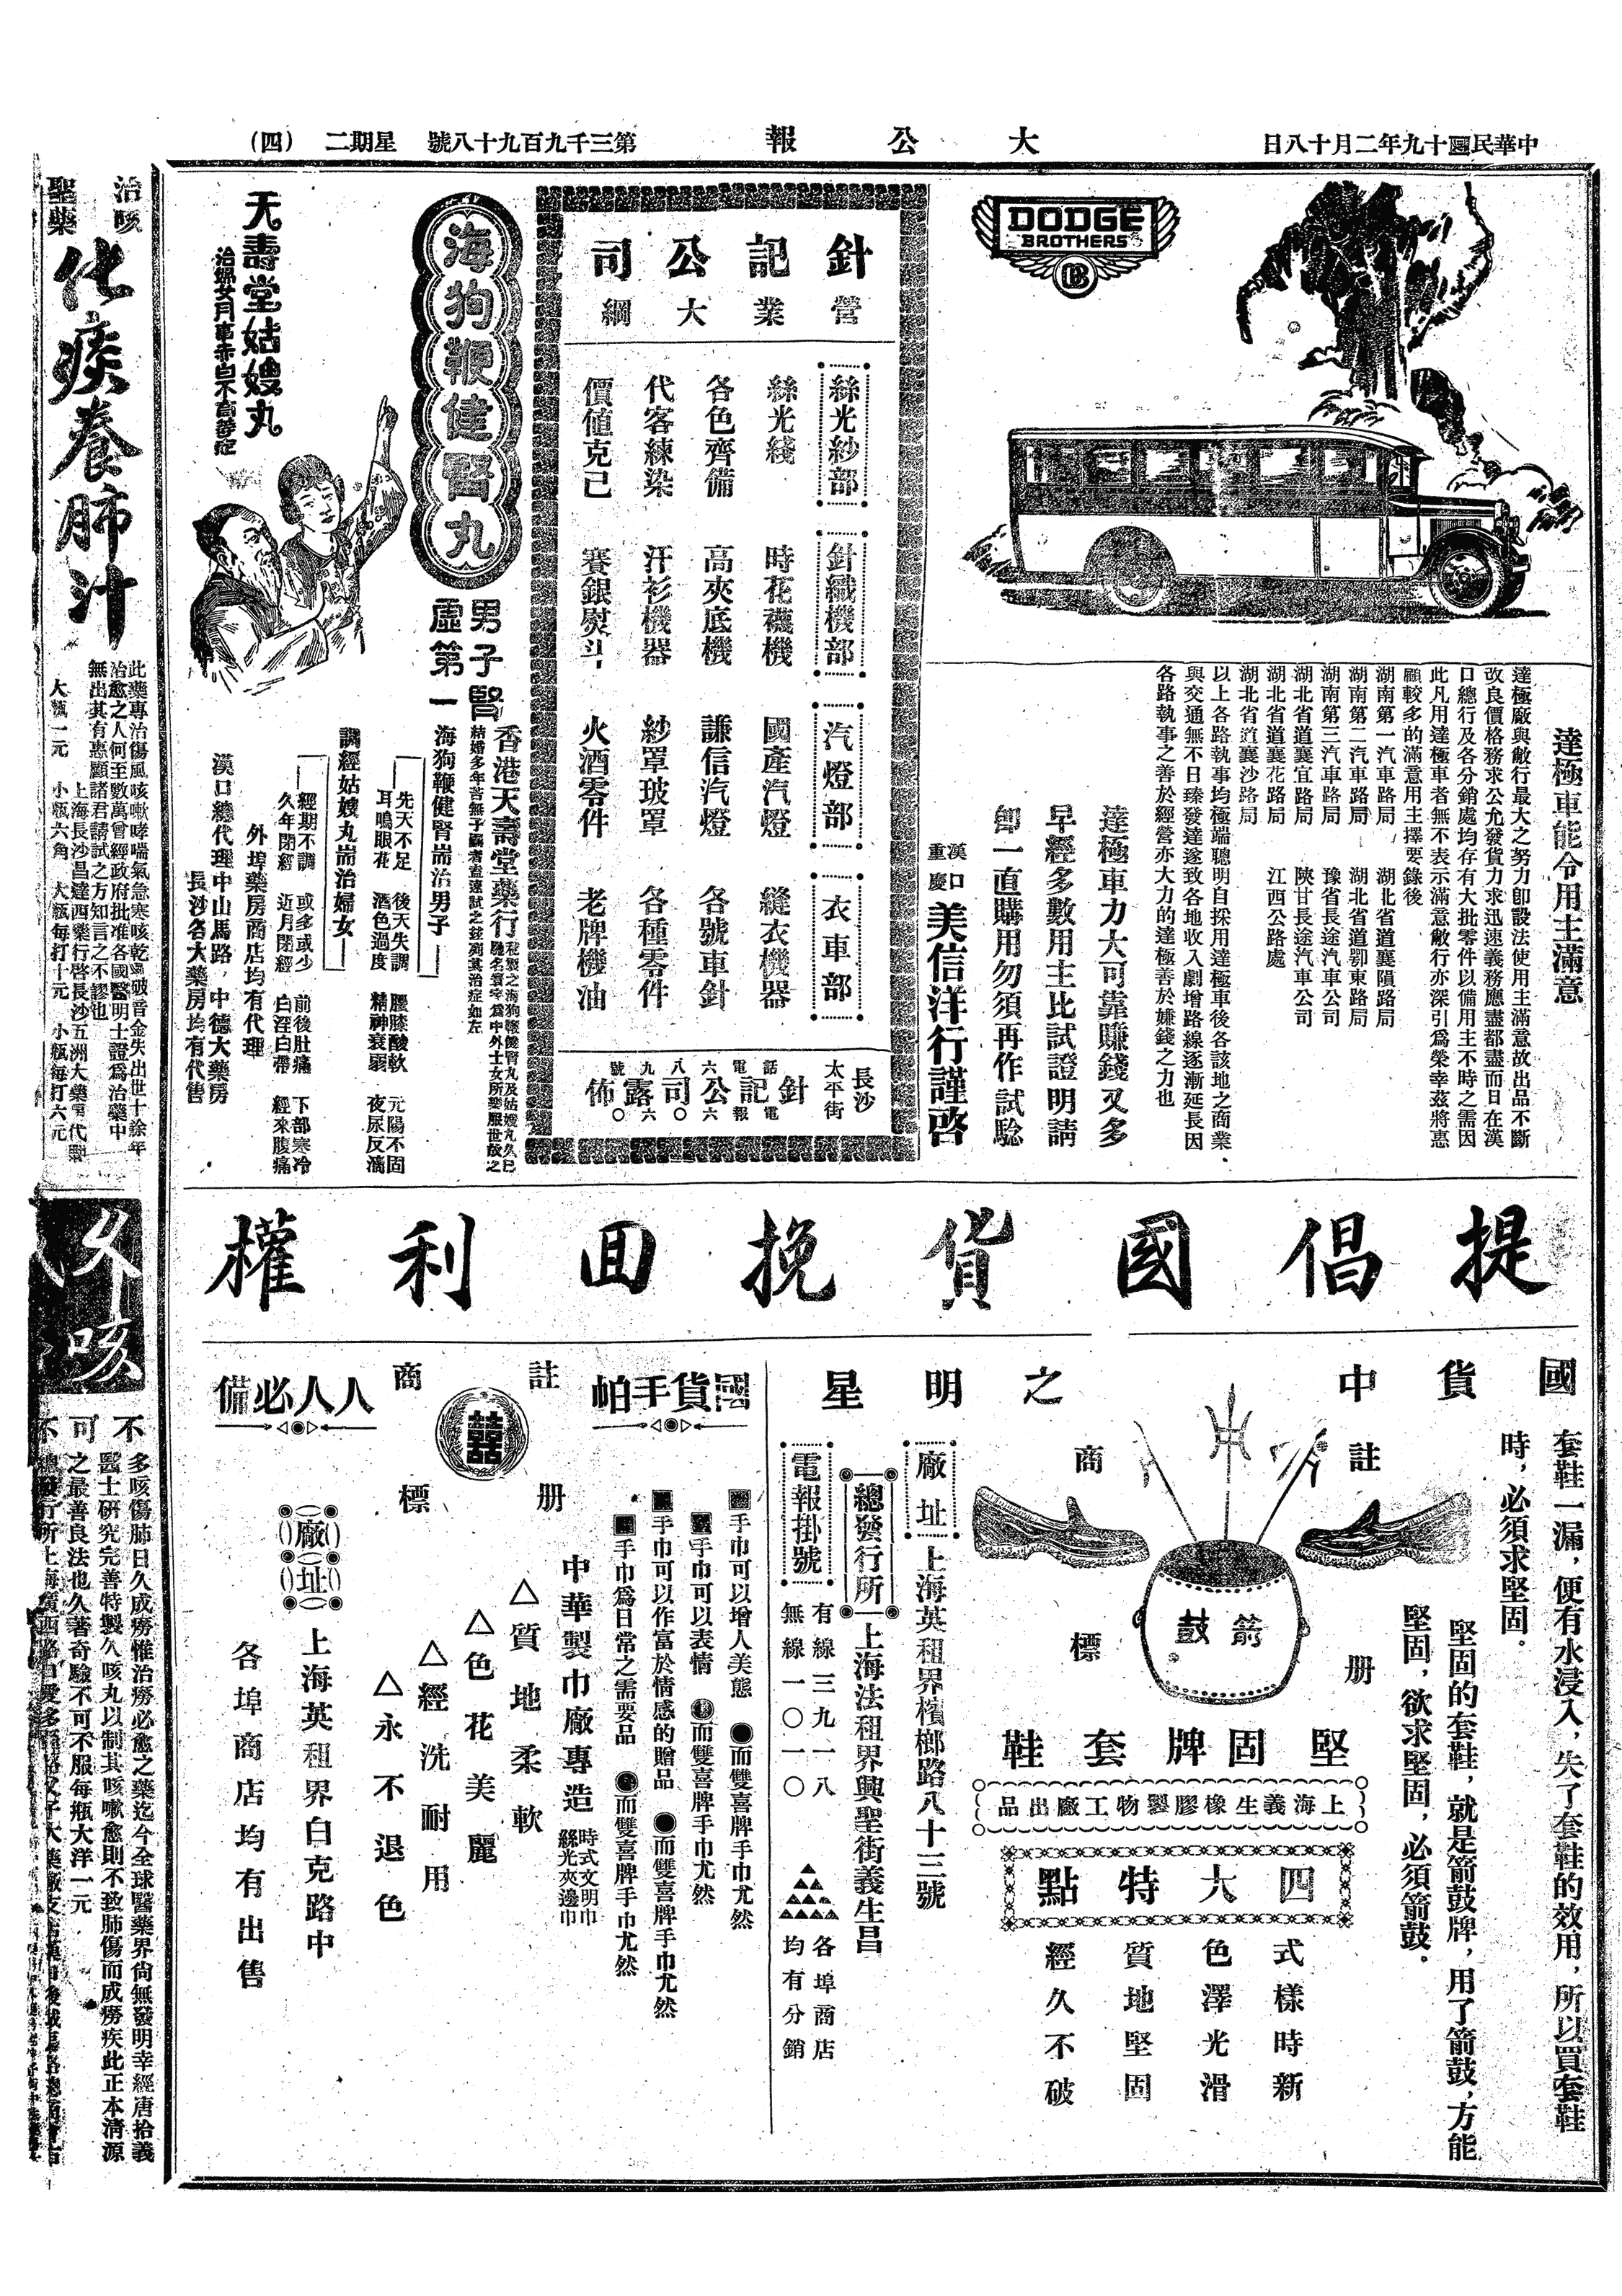 中華民國十九年二月十八日
大公報
第三千九百九十八號
星期二
(四)
DODGE
BROTHERS
DB
達極車能令用主滿意
達極廠與敝行最大之努力卽設法使用主滿意故出品不斷
改良價格務求公允發貨力求迅速義務應盡都盡而日在漢
口總行及各分銷處均存有大批零件以備用主不時之需因
此凡用達極車者無不表示滿意敝行亦深引爲榮幸茲將惠
顧較多的滿意用主擇要錄後
湖南第一汽車路局 湖北省道襄隕路局
湖南第二汽車路局 湖北省道鄂東路局
湖南第三汽車路局 豫省長途汽車公司
湖北省道襄宜路局 陝甘長途汽車公司
湖北省道襄花路局 江西公路處
湖北省道襄沙路局
以上各路執事均極端聰明自採用達極車後各該地之商業
與交通無不日臻發達遂致各地收入劇增路線逐漸延長因
各路執事之善於經營亦大力的達極善於嫌錢之力也
達極車力大可靠賺錢又多
早經多數用主比試證明請
卽一直購用勿須再作試驗
漢口
重慶
美信洋行謹啓
針記公司
營業大綱
絲光紗部
絲光綫
各色齊備
代客練染
價值克己
針織機部
時花襪機
高夾底機
汗衫機器
賽銀熨斗
汽燈部
國產汽燈
謙信汽燈
紗罩玻罩
火酒零件
衣車部
縫衣機器
各號車針
各種零件
老牌機油
長沙
太平街
針記公司露佈
電話六八九號
電報六〇六〇
海狗鞭健腎丸
男子腎
虛第一
天壽堂姑嫂丸
治婦女月事赤白不育等症
香港天壽堂藥行
秘製之海狗鞭健腎丸及姑嫂丸久已
馳名寰宇爲中外士女所樂服世故之
結婚多年苦無子嗣者盍速試之茲列其治症如左
海狗鞭健腎耑治男子
先天不足 後天失調 腰膝酸軟 元陽不固
耳鳴眼花 酒色過度 精神衰弱 夜尿反滴
調經姑嫂丸耑治婦女
經期不調 或多或少 前後肚痛 下部寒冷
久年閉經 近月閉經 白淫白帶 經來腹痛
外埠藥房商店均有代理
漢口總代理中山馬路中德大藥房
長沙各大藥房均有代售
治咳
聖藥
化痰養肺汁
此藥專治傷風咳嗽哮喘氣急寒咳乾嗆破音金失出世十餘年
治愈之人何至數萬曾經政府批准各國醫明士證爲治藥中
無出其有惠顧諸君請試之方知言之不謬也
上海長沙昌達西藥行啓長沙五洲大藥房代理
大瓶一元 小瓶六角 大瓶每打十元 小瓶每打六元
提倡國貨挽回利權
國貨中之明星
套鞋一漏，便有水浸入，失了套鞋的效用，所以買套鞋
時，必須求堅固．
堅固的套鞋，就是箭鼓牌，用了箭鼓，方能
堅固，欲求堅固，必須箭鼓．
註册
商標
箭鼓
堅固牌套鞋
上海義生橡膠製物工廠出品
四大特點
式樣時新
色澤光滑
質地堅固
經久不破
廠址
上海英租界檳榔路八十三號
總發行所
上海法租界興聖街義生昌
電報掛號
有線三九一八
無線一〇一〇
各埠商店
均有分銷
國貨手帕
人人必備
註册
商標
囍
手巾可以增人美態
而雙喜牌手巾尤然
手巾可以表情
而雙喜牌手巾尤然
手巾可以作富於情感的贈品
而雙喜牌手巾尤然
手巾爲日常之需要品
而雙喜牌手巾尤然
中華製巾廠專造
時式文明巾
絲光夾邊巾
△質地柔軟
△色花美麗
△經洗耐用
△永不退色
廠址
上海英租界白克路中
各埠商店均有出售
久咳
不可不
多咳傷肺日久成癆惟治癆必愈之藥迄今全球醫藥界尙無發明幸經唐拾義
醫士研究完善特製久咳丸以制其咳嗽愈則不致肺傷而成癆疾此正本清源
之最善良法也久著奇驗不可不服每瓶大洋一元